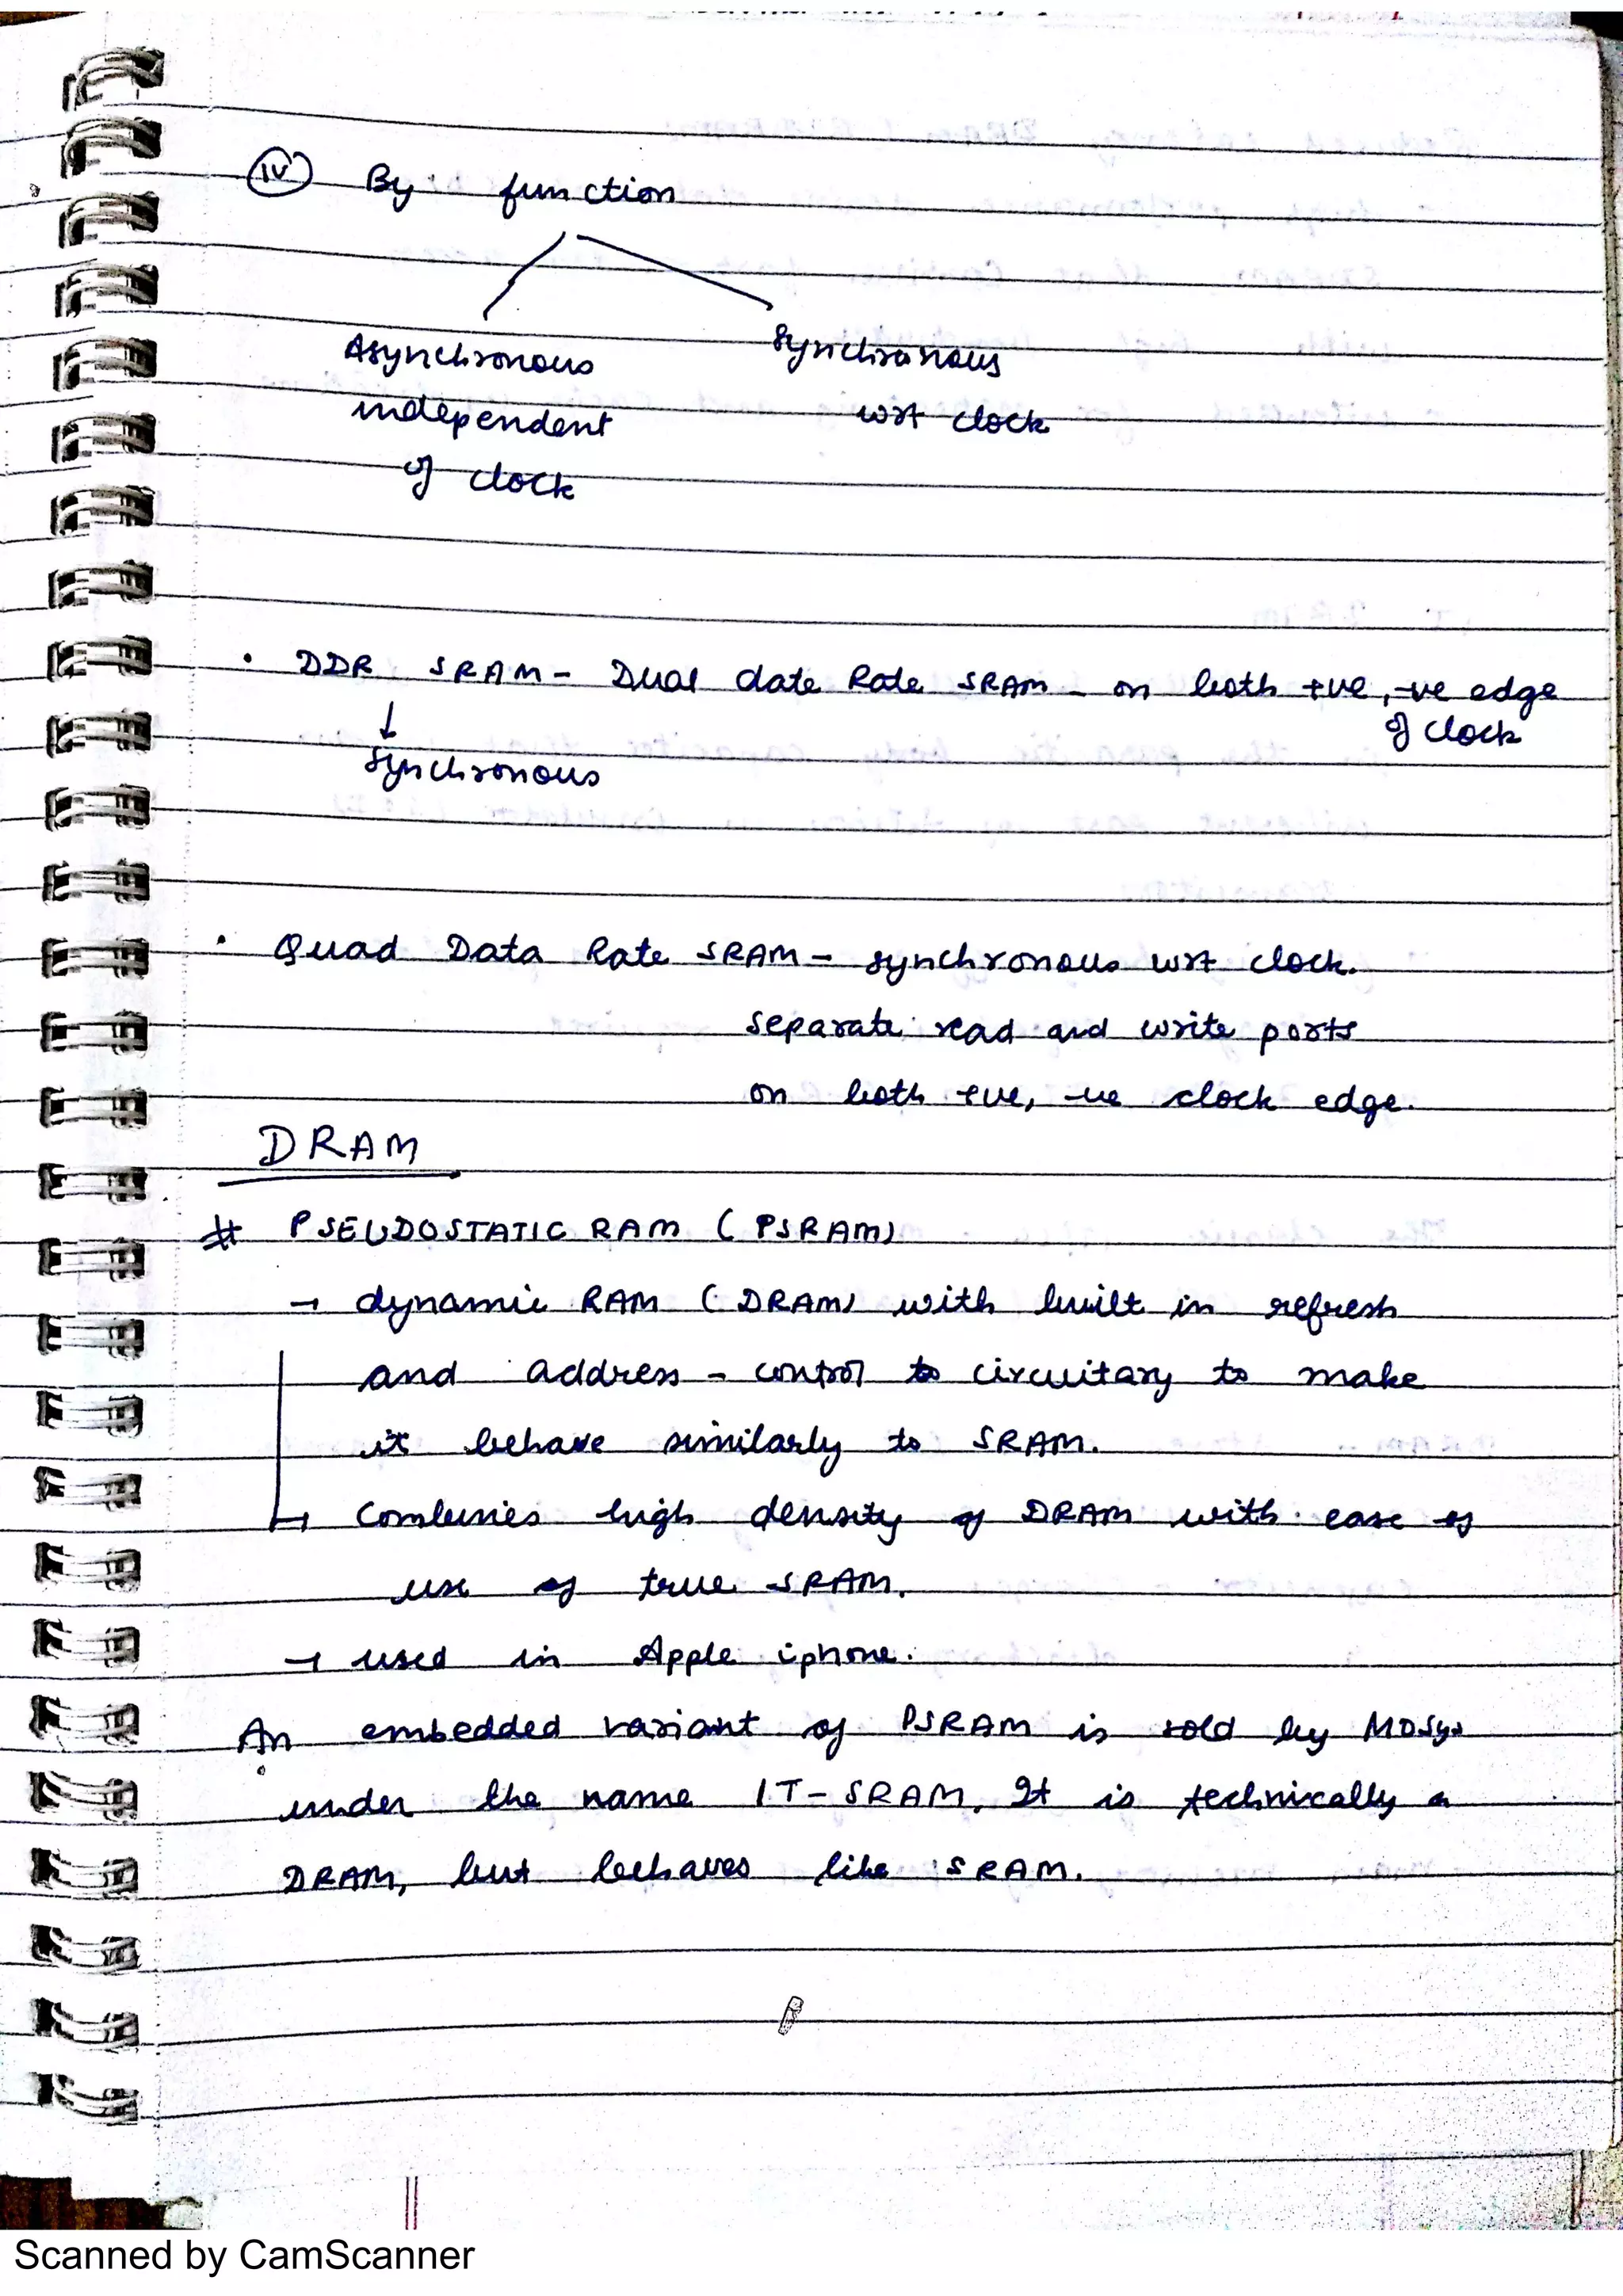 (iv) By function
Asynchronous Synchronous
independent wrt clock
of clock
• DDR SRAM - Dual date Rate SRAM - on both +ve, -ve edge
of clock
↓
synchronous
• Quad Data Rate SRAM - synchronous wrt clock.
separate read and write ports
on both +ve, -ve clock edge.
DRAM
# PSEUDOSTATIC RAM (PSRAM)
→ dynamic RAM (DRAM) with built in refresh
and address - control to circuitary to make
it behave similarly to SRAM.
→ Combines high density of DRAM with ease of
use of true SRAM.
→ used in Apple iphone.
An embedded variant of PSRAM is sold by MOSys
under the name 1T-SRAM. It is technically a
DRAM, but behaves like SRAM.
Scanned by CamScanner